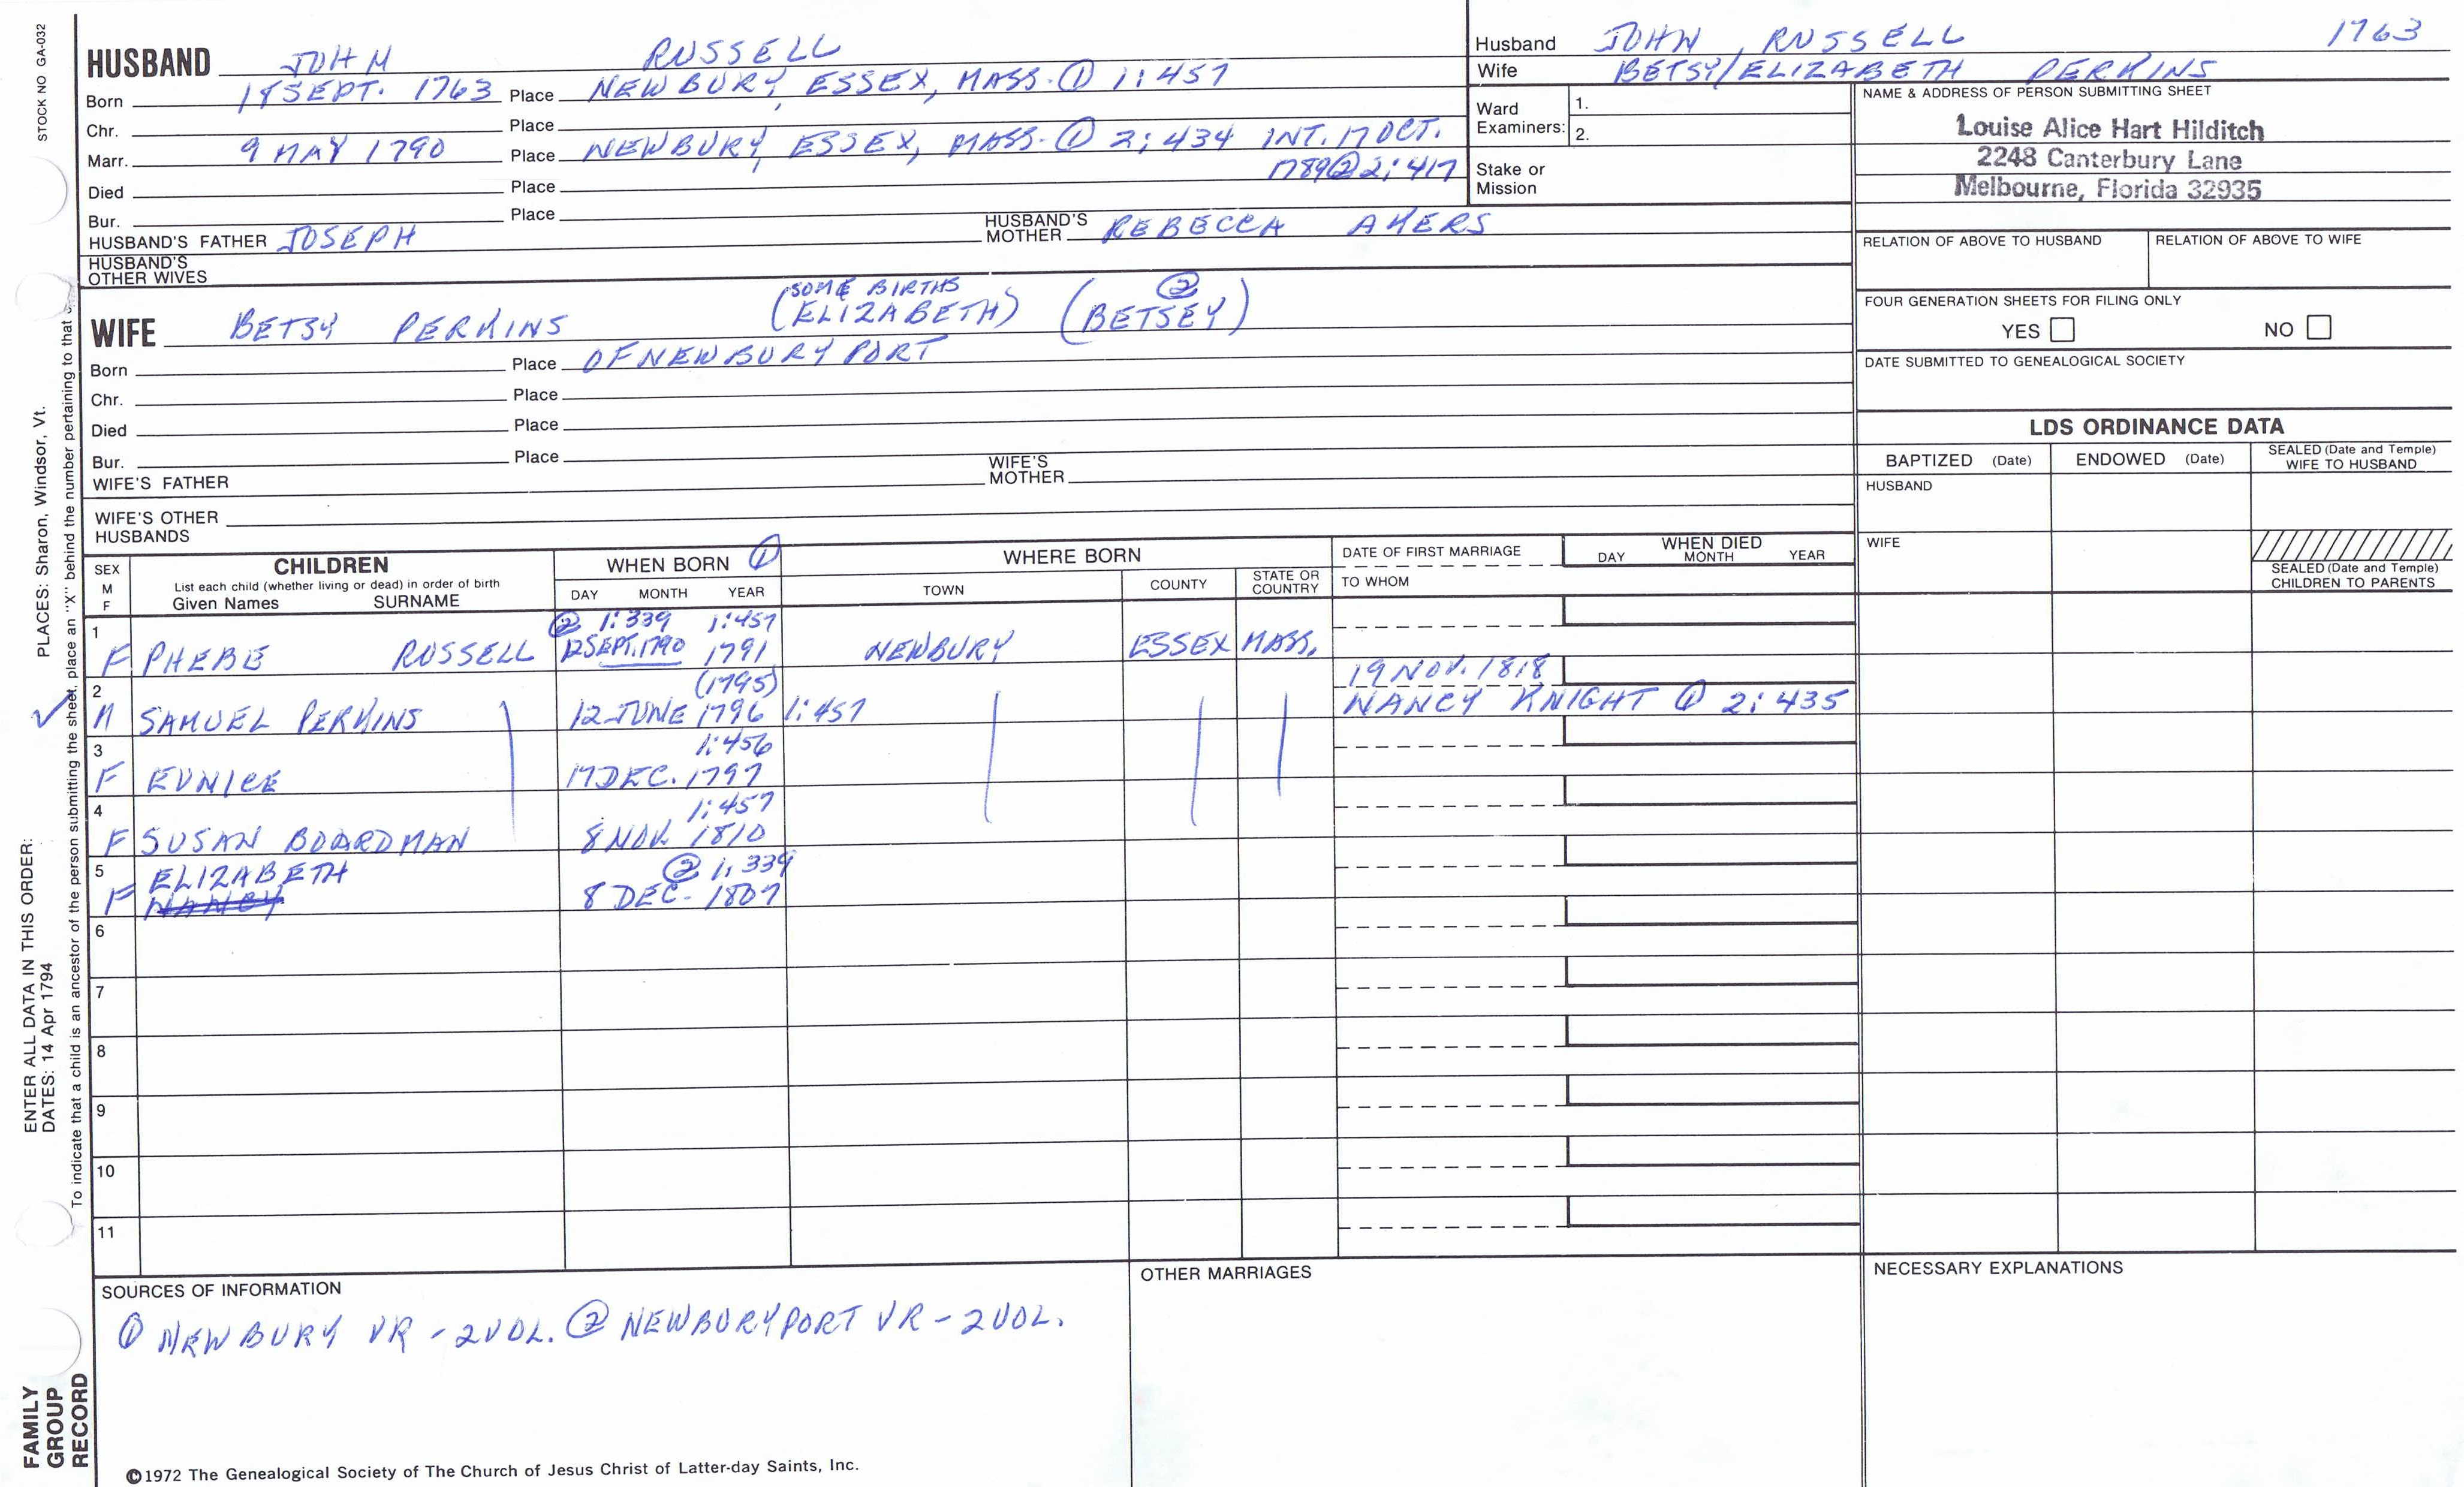 STOCK NO GA-032
PLACES: Sharon, Windsor, Vt.
ENTER ALL DATA IN THIS ORDER:
DATES: 14 Apr 1794
To indicate that a child is an ancestor of the person submitting the sheet, place an "X" behind the number pertaining to that
FAMILY GROUP RECORD
HUSBAND JOHN RUSSELL
Born 18 SEPT. 1763 Place NEWBURY, ESSEX, MASS. ① 1:457
Chr. Place
Marr. 9 MAY 1790 Place NEWBURY, ESSEX, MASS. ① 2:434 INT. 17 OCT.
1789 ② 2:417
Died Place
Bur. Place
HUSBAND'S FATHER JOSEPH HUSBAND'S MOTHER REBECCA AKERS
HUSBAND'S OTHER WIVES
(SOME BIRTHS ②
WIFE BETSY PERKINS (ELIZABETH) (BETSEY)
Born Place OF NEWBURYPORT
Chr. Place
Died Place
Bur. Place
WIFE'S FATHER WIFE'S MOTHER
WIFE'S OTHER HUSBANDS
Husband JOHN RUSSELL 1763
Wife BETSY/ELIZABETH PERKINS
Ward Examiners: 1.
2.
Stake or Mission
NAME & ADDRESS OF PERSON SUBMITTING SHEET
Louise Alice Hart Hilditch
2248 Canterbury Lane
Melbourne, Florida 32935
RELATION OF ABOVE TO HUSBAND RELATION OF ABOVE TO WIFE
FOUR GENERATION SHEETS FOR FILING ONLY
YES NO
DATE SUBMITTED TO GENEALOGICAL SOCIETY
LDS ORDINANCE DATA
BAPTIZED (Date) ENDOWED (Date) SEALED (Date and Temple) WIFE TO HUSBAND
HUSBAND
WIFE
SEALED (Date and Temple) CHILDREN TO PARENTS
SEX M F CHILDREN WHEN BORN ① WHERE BORN DATE OF FIRST MARRIAGE WHEN DIED
List each child (whether living or dead) in order of birth
Given Names SURNAME DAY MONTH YEAR TOWN COUNTY STATE OR COUNTRY TO WHOM DAY MONTH YEAR
1 ② 1:339 1:457
F PHEBE RUSSELL 12 SEPT. 1790 1791 NEWBURY ESSEX MASS.
2 (1795) 19 NOV. 1818
M SAMUEL PERKINS 12 JUNE 1796 1:457 NANCY KNIGHT ① 2:435
3 1:456
F EUNICE 17 DEC. 1797
4 1:457
F SUSAN BOARDMAN 8 NOV. 1810
5 ELIZABETH ② 1:339
F NANCY 8 DEC. 1807
6
7
8
9
10
11
SOURCES OF INFORMATION
① NEWBURY VR - 2 VOL. ② NEWBURYPORT VR - 2 VOL.
OTHER MARRIAGES
NECESSARY EXPLANATIONS
©1972 The Genealogical Society of The Church of Jesus Christ of Latter-day Saints, Inc.